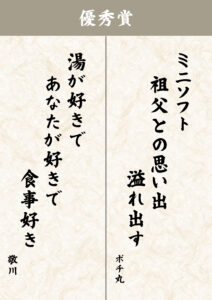 優秀賞
ミニソフト
祖父との思い出
溢れ出す
ポチ丸
湯が好きで
あなたが好きで
食事好き
敬川